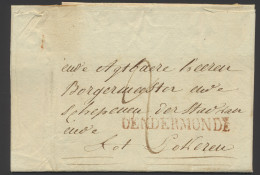 ende Agtbaere heeren
Borgermeester ende
Schepenen der Stad van
ende
DENDERMONDE
tot Lokeren